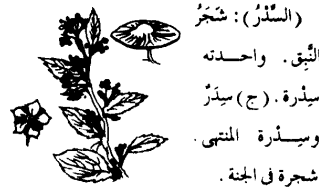 (السِّدْرُ) : شَجَرُ
النَّبِق. واحـــدته
سِدْرة. (ج) سِدَرٌ
وسِــدْرة المنتهى.
شجرة في الجنة.